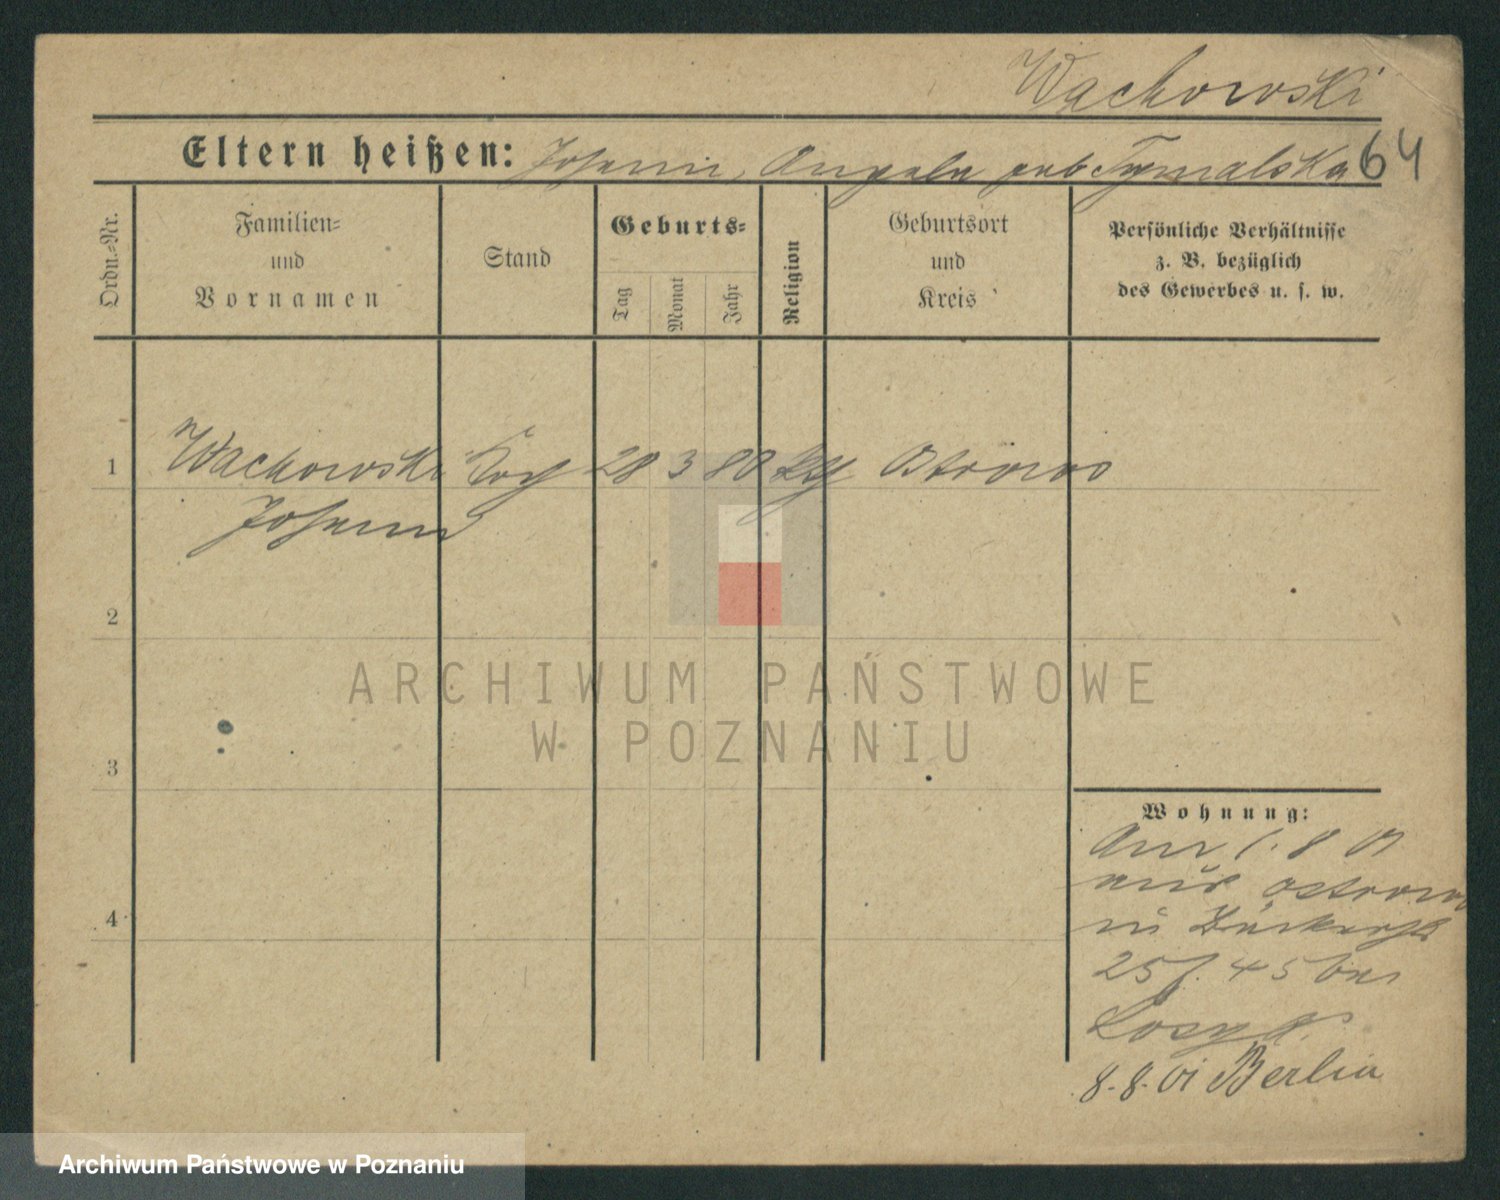 Wachowski
Eltern heißen: Johann, Angela geb Tymalska 64
Ordn.-Nr.
Familien-
und
Vornamen
Stand
Geburts-
Tag
Monat
Jahr
Religion
Geburtsort
und
Kreis
Persönliche Verhältnisse
z. B. bezüglich
des Gewerbes u. s. w.
1
Wachowski Koch 28 3 80 Ostrowo
Johann
2
3
4
ARCHIWUM PAŃSTWOWE
W POZNANIU
Wohnung:
1. 8 01
aus Ostrowo
in Bäckerstr
25 45 bei
8. 8. 01 Berlin
Archiwum Państwowe w Poznaniu